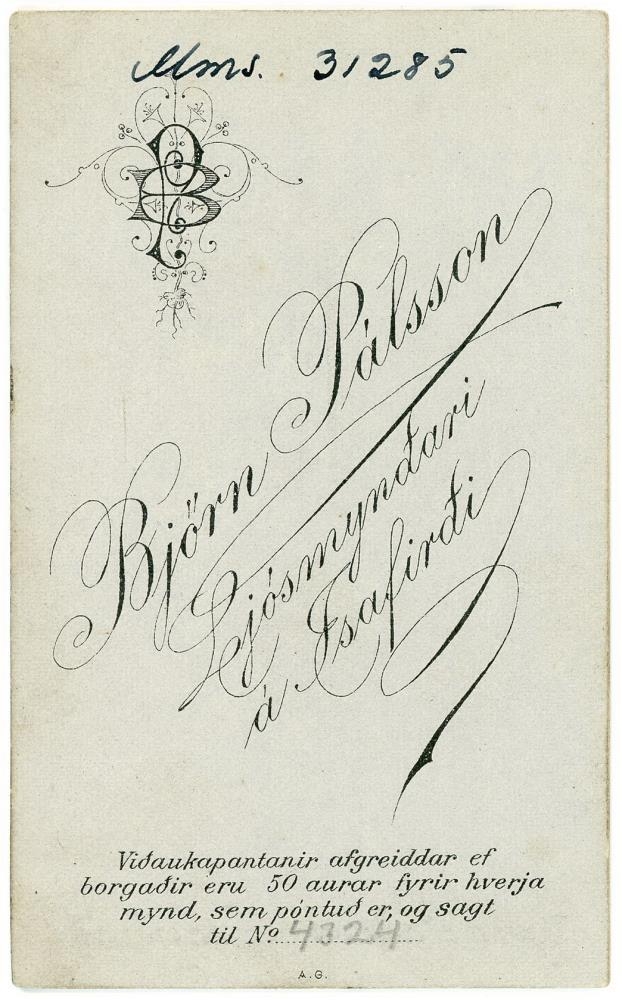 Mms. 31285
BP
Björn Pálsson
Ljósmyndari
á Ísafirði
Viðaukapantanir afgreiddar ef
borgaðir eru 50 aurar fyrir hverja
mynd, sem pöntuð er, og sagt
til Nº 4324
A.G.